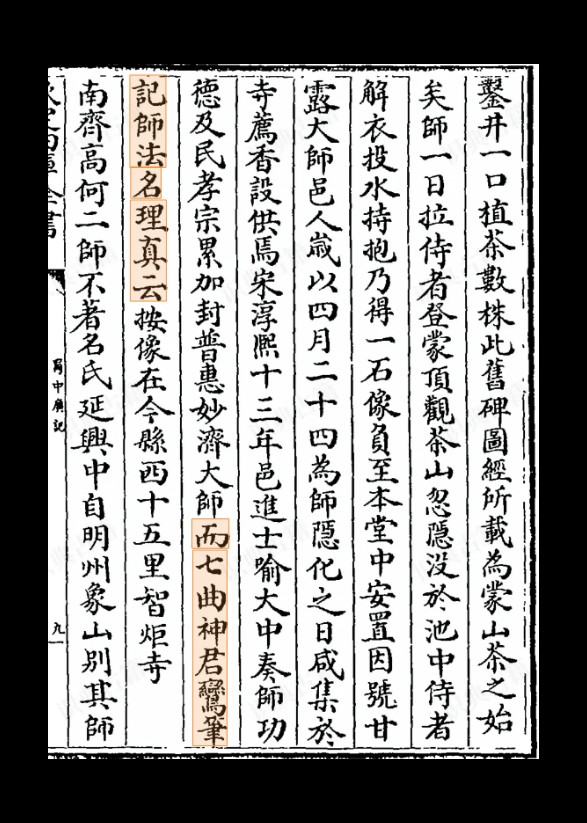 鑿井一口植茶數株此舊碑圖經所載為蒙山茶之始
矣師一日拉侍者登蒙頂觀茶山忽隱没於池中侍者
解衣投水持抱乃得一石像負至本堂中安置因號甘
露大師邑人嵗以四月二十四為師隠化之日咸集於
寺薦香設供焉宋淳熈十三年邑進士喻大中奏師功
徳及民孝宗累加封普惠妙濟大師而七曲神君鸞筆
記師法名理真云按像在今縣西十五里智炬寺
南齊高何二師不著名氏延興中自明州象山别其師
蜀中廣記
九